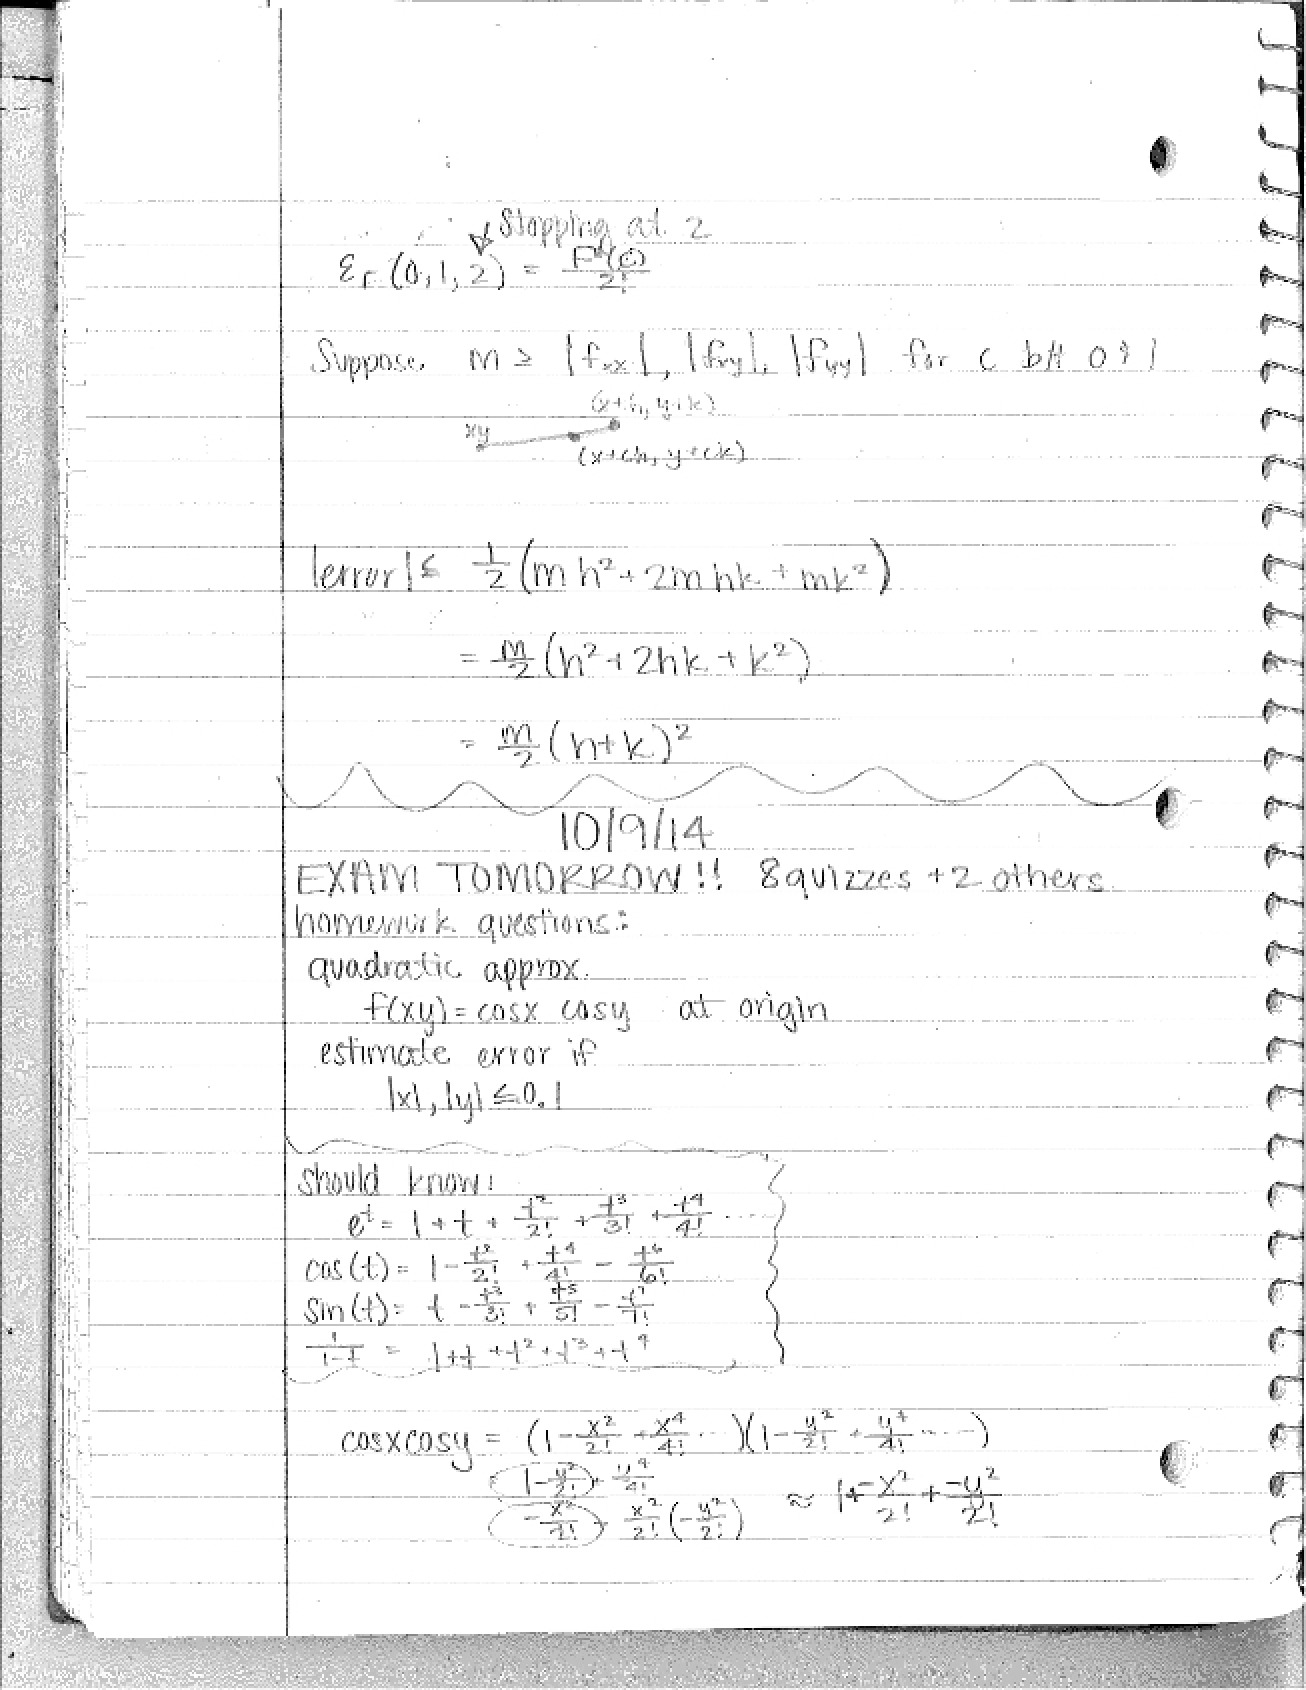 Stopping at 2
Er (0,1,2) = F"(c)/2!
Suppose m ≥ |fxx|, |fxy|, |fyy| for c btt 0 & 1
(x+h, y+k)
xy
(x+ch, y+ck)
|error| ≤ 1/2 (mh² + 2mhk + mk²)
= m/2 (h² + 2hk + k²)
= m/2 (h+k)²
10/9/14
EXAM TOMORROW!! 8 quizzes + 2 others
homework questions:
quadratic approx.
f(xy) = cosx cosy at origin
estimate error if
|x|, |y| ≤ 0.1
Should know:
e^t = 1 + t + t²/2! + t³/3! + t⁴/4! ....
cos(t) = 1 - t²/2! + t⁴/4! - t⁶/6!
Sin(t) = t - t³/3! + t⁵/5! - t⁷/7!
1/(1-t) = 1+t+t²+t³+t⁴
cosxcosy = (1 - x²/2! + x⁴/4! ...)(1 - y²/2! + y⁴/4! ....)
1 - y²/2! + y⁴/4!
- x²/2! - x²/2! (- y²/2!) ≈ 1 + -x²/2! + -y²/2!